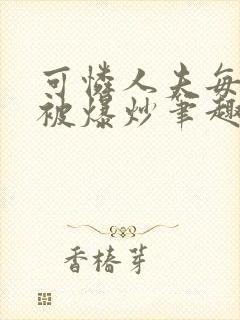 可怜人夫每
被爆炒笔趣
香椿芽